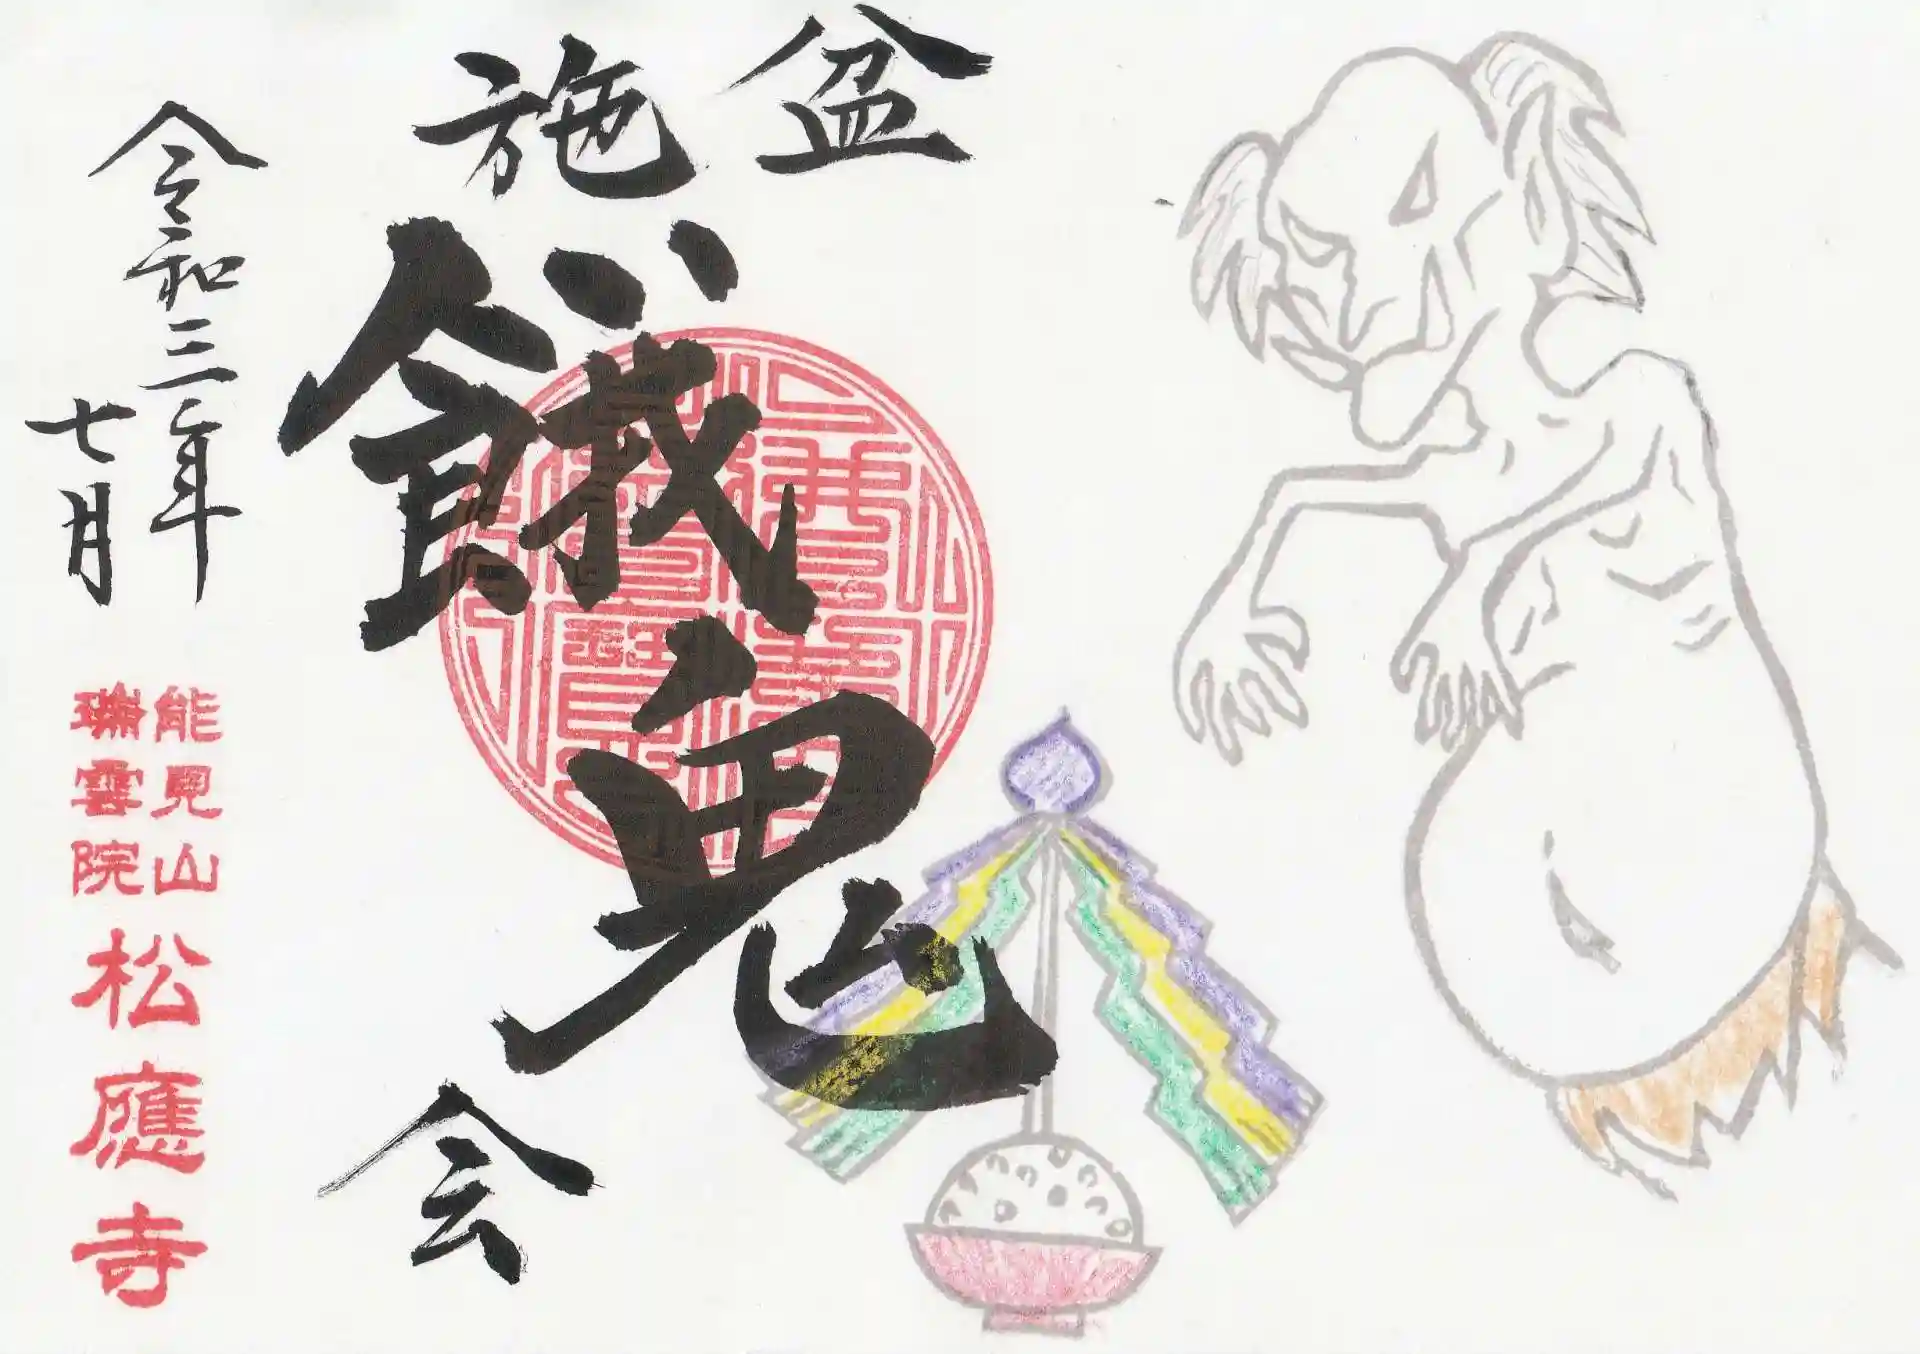 盆
施餓鬼会
令和三年
七月
能見山
瑞雲院
松應寺